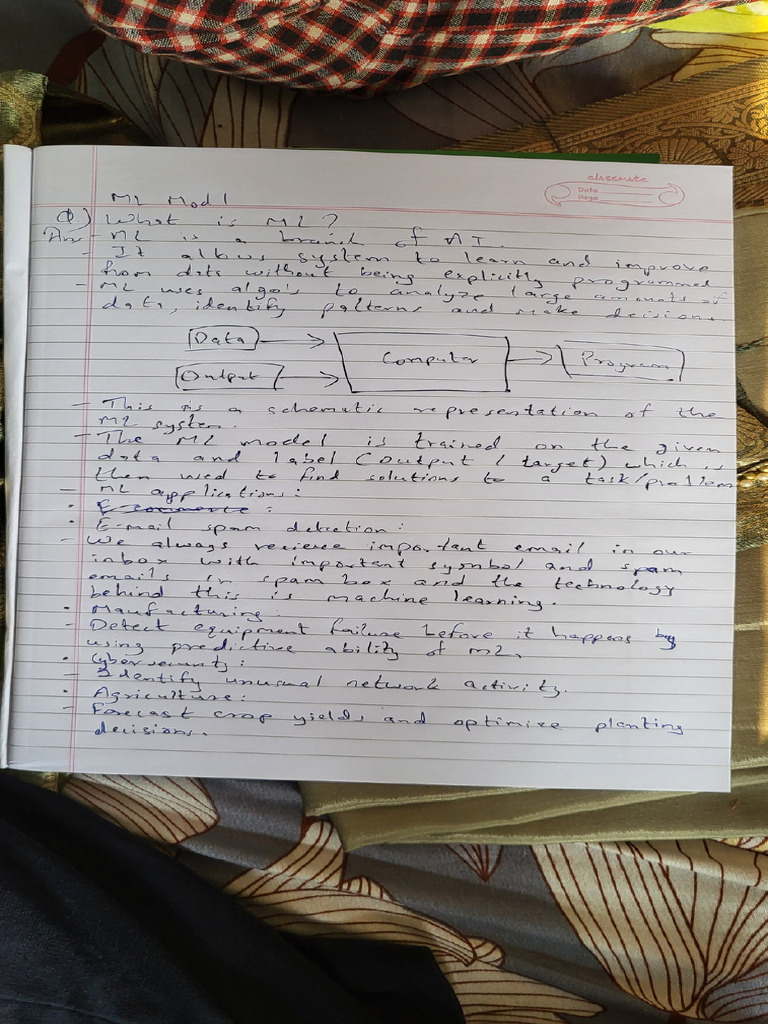 classmate
Date
Page
ML Modl
Q) What is ML?
Ans - ML is a branch of AI.
- It allows system to learn and improve
from data without being explicitly programmed
- ML uses algo's to analyze large amounts of
data, identify patterns and make decisions
Data
Computer
Program
Output
- This is a schematic representation of the
ML system.
- The ML model is trained on the given
data and label (output / target) which is
then used to find solutions to a task/problem
- ML applications:
• E-commerce :
• E-mail spam detection:
- We always recieve important email in our
inbox with important symbol and spam
emails in spam box and the technology
behind this is machine learning.
• Maufacturing:
- Detect equipment failure before it happens by
using predictive ability of ML.
• Cybersecurity:
- Identify unusual network activity.
• Agriculture:
- Forecast crop yields and optimize planting
decisions.